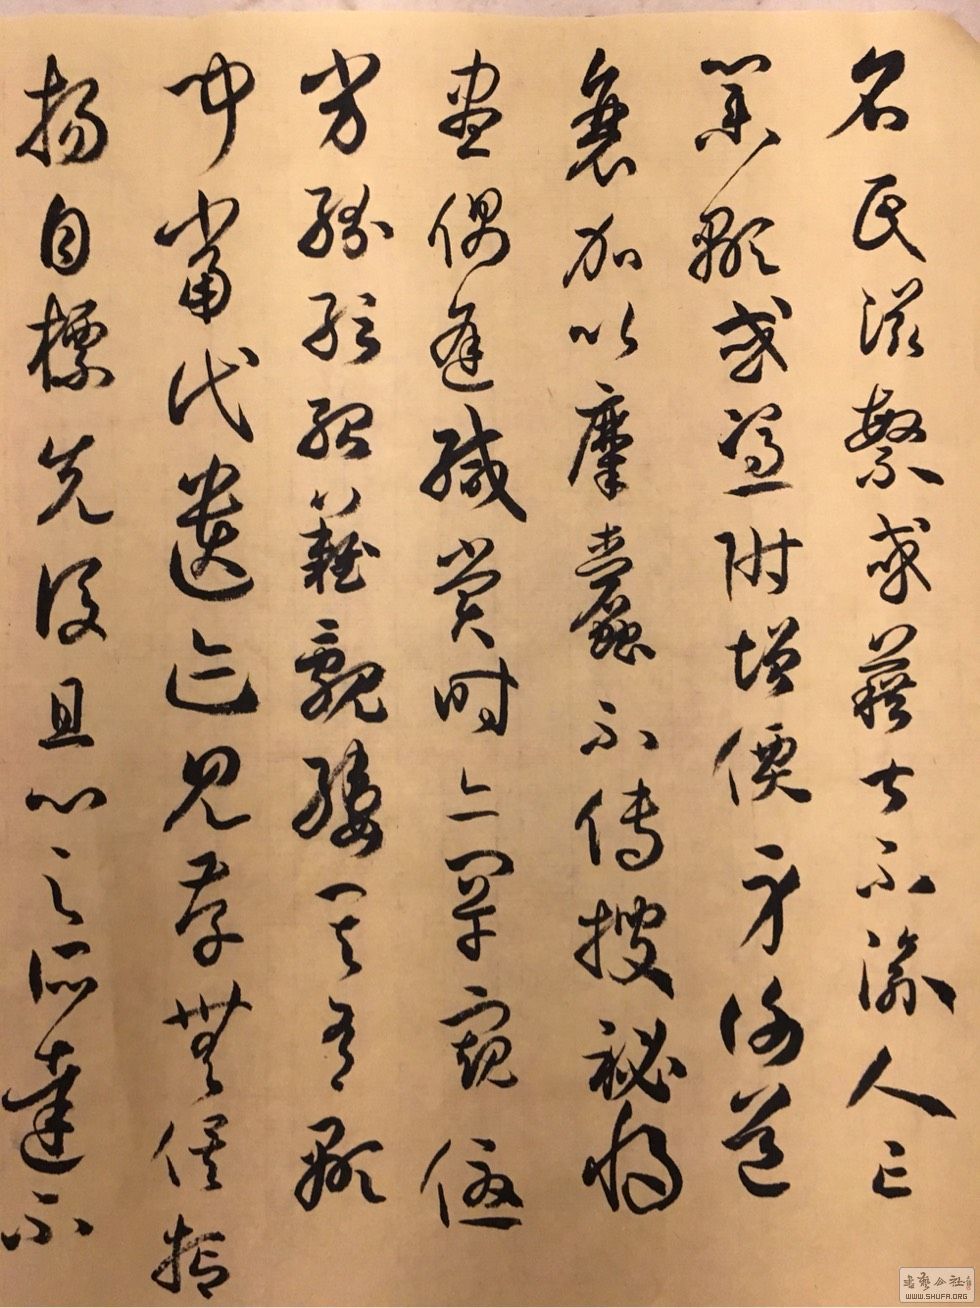 名氏滋繁或藉甚不渝人亡
業顯或憑附增價身謝道
衰加以糜蠹不傳搜祕將
盡偶逢緘賞時亦罕窺優
劣紛紜殆難覼縷其有顯
聞當代遺迹見存無俟抑
揚自標先後且心之所達不
書藝公社
WWW.SHUFA.ORG